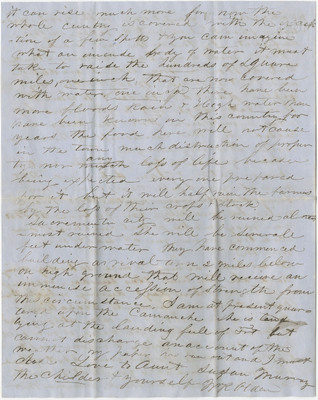 it can ride much more for now the
whole country is covered with the exception
of a few spots & you can imagin
what an immense body of water it must
take to raise the hundreds of square
miles, one inch, that are now covered
with water, one in there have been
more floods rain & high water than
have been known in this country for
years the flood here will not cause
in the town much distruction of proper
ty nor much any loss of life because
being expected every one prepared
for it but it will help ruin the farmers
by the loss of their crops & stock
Sacramento city will be ruined al
most ruined she will be severall
feet under water they have commenced
building a rival town 2 miles below
on high ground that will receive an
immence accession of strength from
this circumstance. I am at present quar
tered upon the Camanche she is
lying at the landing full of but
cannot discharge on account of the
weather my paper is run out and I must
close Love to Aunt Susan Murray
the Childer & yourself